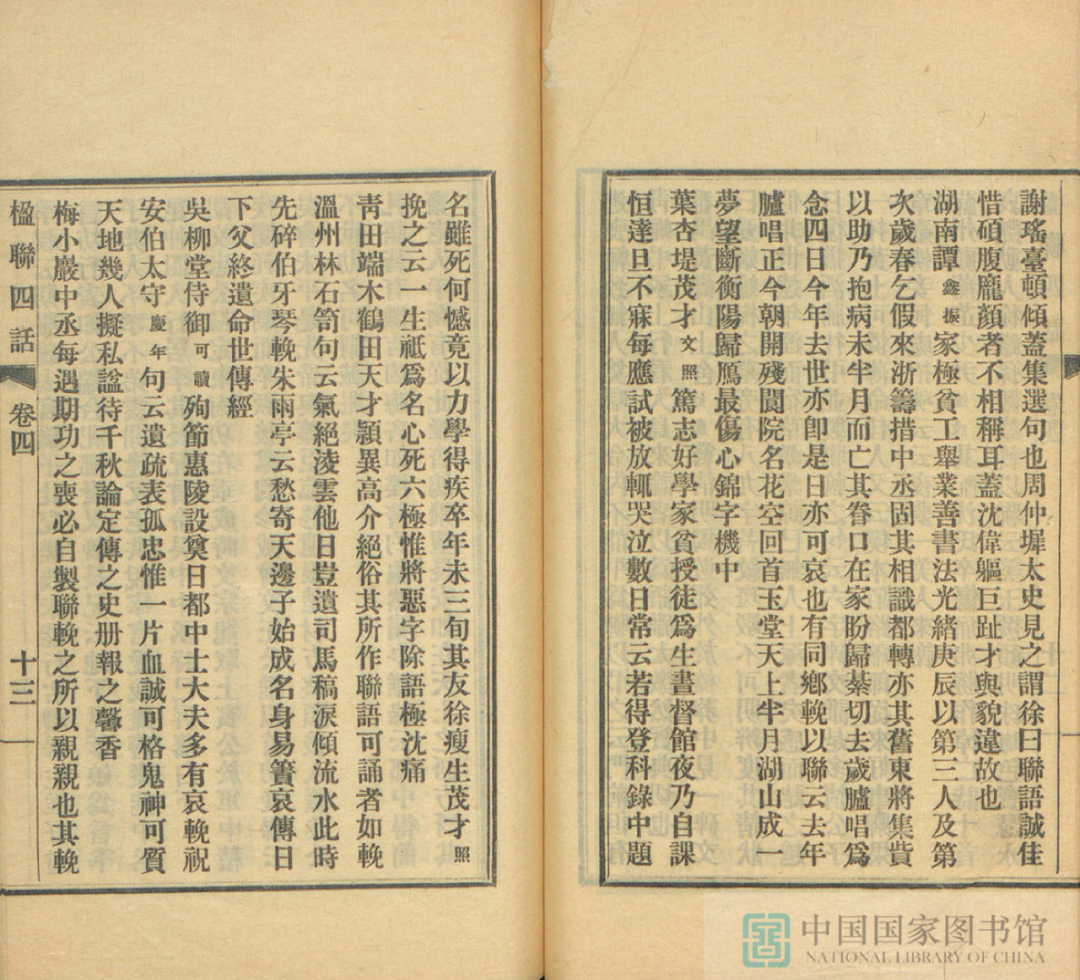 謝瑤臺頓傾蓋集選句也周仲墀太史見之謂徐曰聯語誠佳
惜碩腹龐顏者不相稱耳蓋沈偉軀巨趾才與貌違故也
湖南譚鑫振家極貧工舉業善書法光緒庚辰以第三人及第
次歲春乞假來浙籌措中丞固其相識都轉亦其舊東將集貲
以助乃抱病未半月而亡其眷口在家盼歸綦切去歲臚唱爲
念四日今年去世亦卽是日亦可哀也有同鄉輓以聯云去年
臚唱正今朝開殘閬院名花空回首玉堂天上半月湖山成一
夢望斷衡陽歸鴈最傷心錦字機中
葉杏堤茂才文照篤志好學家貧授徒爲生晝督館夜乃自課
恒達旦不寐每應試被放輒哭泣數日常云若得登科錄中題
名雖死何憾竟以力學得疾卒年未三旬其友徐瘦生茂才照
挽之云一生祇爲名心死六極惟將惡字除語極沈痛
靑田端木鶴田天才穎異高介絕俗其所作聯語可誦者如輓
溫州林石笥句云氣絕淩雲他日豈遺司馬稿淚傾流水此時
先碎伯牙琴輓朱雨亭云愁寄天邊子始成名身易簀哀傳日
下父終遺命世傳經
吳柳堂侍御可讀殉節惠陵設奠日都中士大夫多有哀輓祝
安伯太守慶年句云遺疏表孤忠惟一片血誠可格鬼神可質
天地幾人擬私諡待千秋論定傳之史册報之馨香
梅小巖中丞每遇期功之喪必自製聯輓之所以親親也其輓
楹聯四話 卷四 十三
中国国家图书馆
NATIONAL LIBRARY OF CHINA